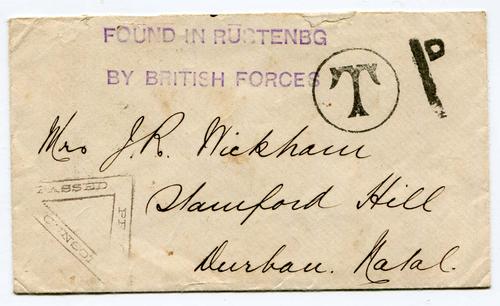 FOUND IN RUSTENBG
BY BRITISH FORCES
T
1D
Mrs J. R. Wickham
Stamford Hill
Durban. Natal.
PASSED